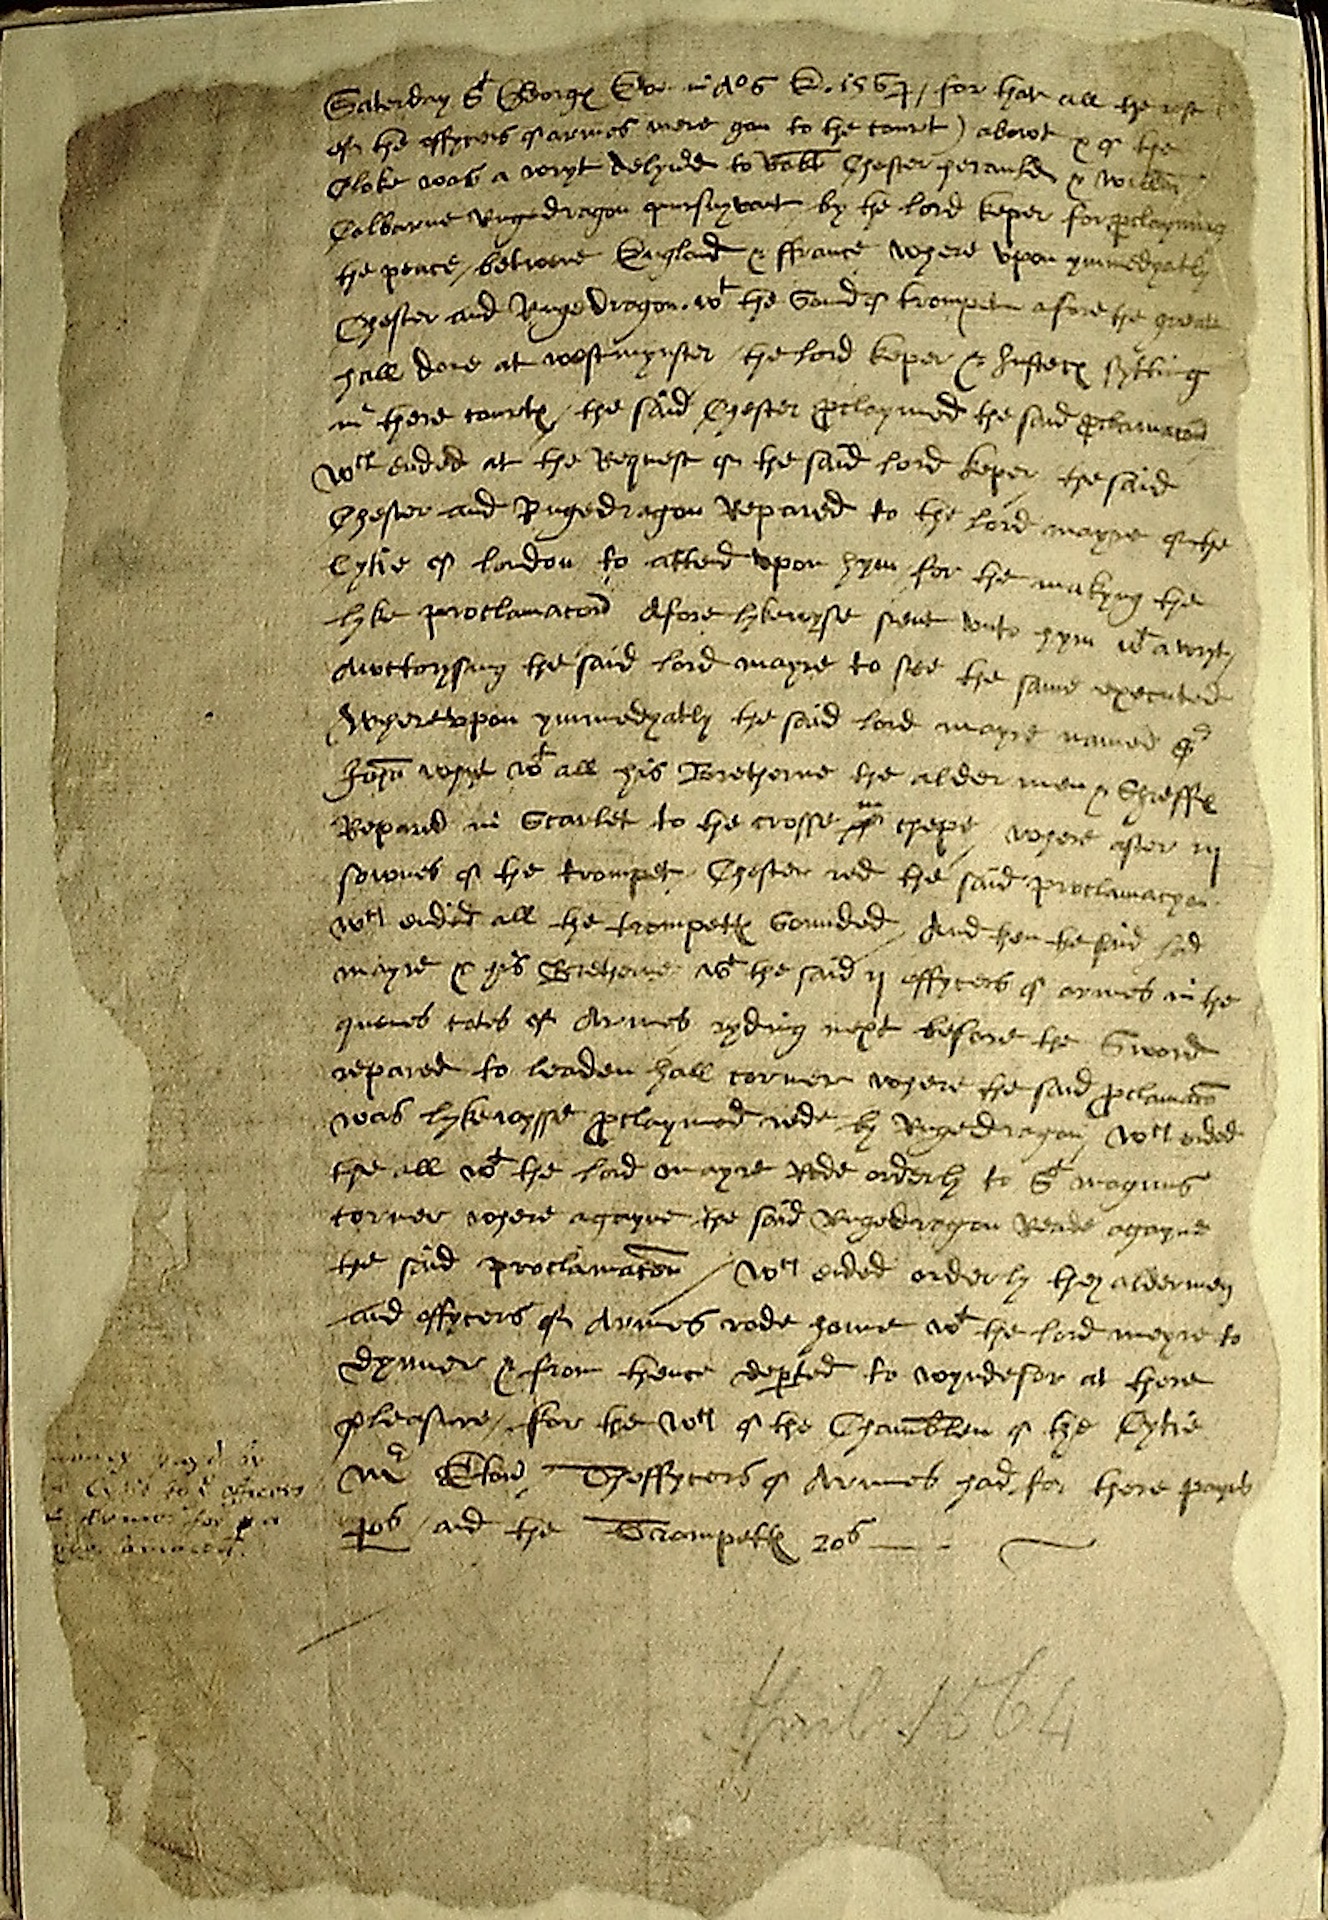 Saterday St Georgs Eve in Ao 6 E. 1564, for that all the rest
of the offycers of armes were gon to the court) abowt x of the
Cloke was a wryt delyved to Robt Chester herauld & Willm
Colbarne Rugedragon pursuyvant by the lord keper for pclayming
the peace, betwene England & ffrance where upon ymmedyatly
Chester and Ruge Dragon. wt the Sound of trompetts afore the greate
hall dore at westmynster, the lord keper & Justecs sytting
in there courts, the said Chester pclaymed the said pclamacon
wch ended at the Request of the said lord keper the said
Chester and Rugedragon Repared to the lord mayre of the
Cytie of london to attend vpon hym for the makyng the
lyke proclamacon afore lykewyse sent vnto hym wt a wryt
Auctorysing the said lord mayre to see the same executed
Wherevpon ymmedyatly the said lord mayre named Sr
John whyt wt all his Bretherne the alder men & Shreffs
Repard in Scarlet to the crosse in chepe, where after iij
sownes of the trompet Chester red the said proclamacyon
wch ended all the trompetts Sounded, And then the said lord
mayre & his Bretherne wt the said ij offycers of armes in the
quenes cotes of Armes ryding next before the Sword
repared to leaden hall corner where the said pclamacon
was lykewysse pclaymed rede by Rugedragon, wch ended
the all wt the lord mayre Rode orderly to St magnus
corner where agayne the said Rugedragon Reade agayne
the said proclamacon / wch ended orderly they aldermen
and offycers of Armes rode home wt the lord meyre to
dynner & from thence depted to wyndesor at there
pleasure, for the wch of the Chamblen of the Cytie
Mr Theffycers of Armes had for there payns
40s, and the Trompetts 20s
offycers
Armes for
April 1564